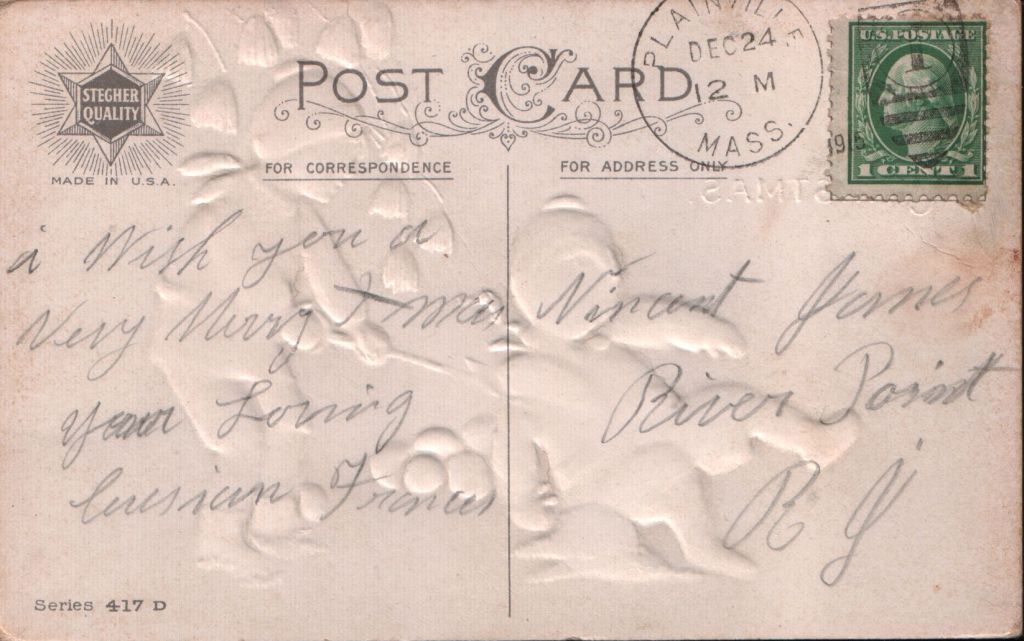 STEGHER
QUALITY
MADE IN U.S.A.
POST CARD
PLAINVILLE
DEC 24
12 M
1915
MASS.
U.S. POSTAGE
1 CENT 1
FOR CORRESPONDENCE
FOR ADDRESS ONLY
STMAS.
i Wish you a
Very Merry X-mas
your Loving
Cusian Frances
Vincent James
River Point
R I
Series 417 D